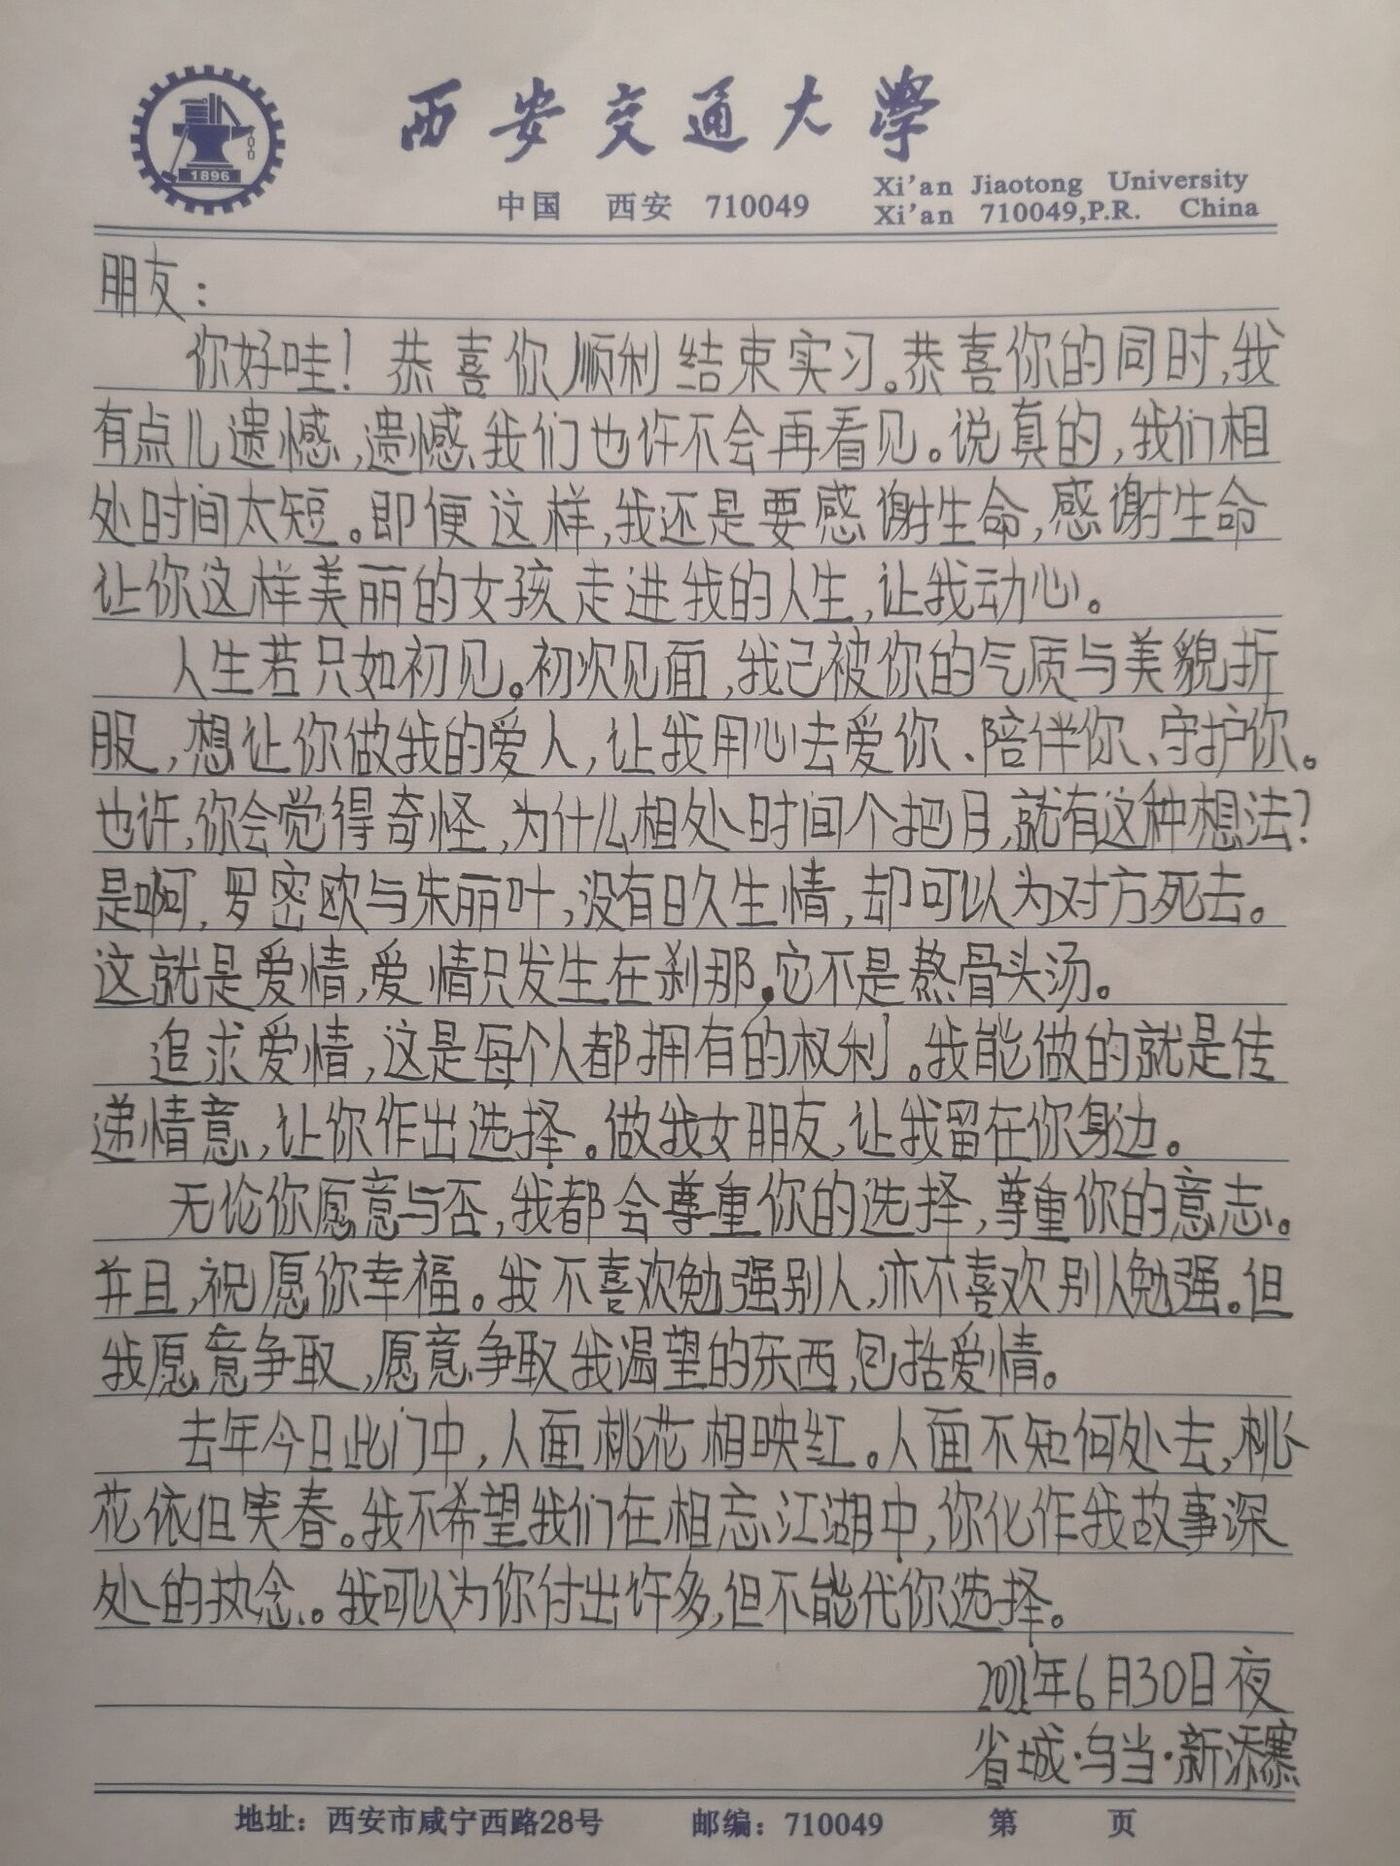 西安交通大學
1896
中国 西安 710049
Xi'an Jiaotong University
Xi'an 710049,P.R. China
朋友：
你好哇！恭喜你顺利结束实习。恭喜你的同时，我
有点儿遗憾，遗憾我们也许不会再看见。说真的，我们相
处时间太短。即便这样，我还是要感谢生命，感谢生命
让你这样美丽的女孩走进我的人生，让我动心。
人生若只如初见。初次见面，我已被你的气质与美貌折
服，想让你做我的爱人，让我用心去爱你、陪伴你、守护你。
也许，你会觉得奇怪，为什么相处时间个把月，就有这种想法？
是啊，罗密欧与朱丽叶，没有日久生情，却可以为对方死去。
这就是爱情，爱情只发生在刹那，它不是熬骨头汤。
追求爱情，这是每个人都拥有的权利。我能做的就是传
递情意，让你作出选择。做我女朋友，让我留在你身边。
无论你愿意与否，我都会尊重你的选择，尊重你的意志。
并且，祝愿你幸福。我不喜欢勉强别人，亦不喜欢别人勉强。但
我愿意争取，愿意争取我渴望的东西，包括爱情。
去年今日此门中，人面桃花相映红。人面不知何处去，桃
花依但笑春。我不希望我们在相忘江湖中，你化作我故事深
处的执念。我可以为你付出许多，但不能代你选择。
年6月30日夜
省城·乌当·新添寨
地址：西安市咸宁西路28号 邮编：710049 第 页